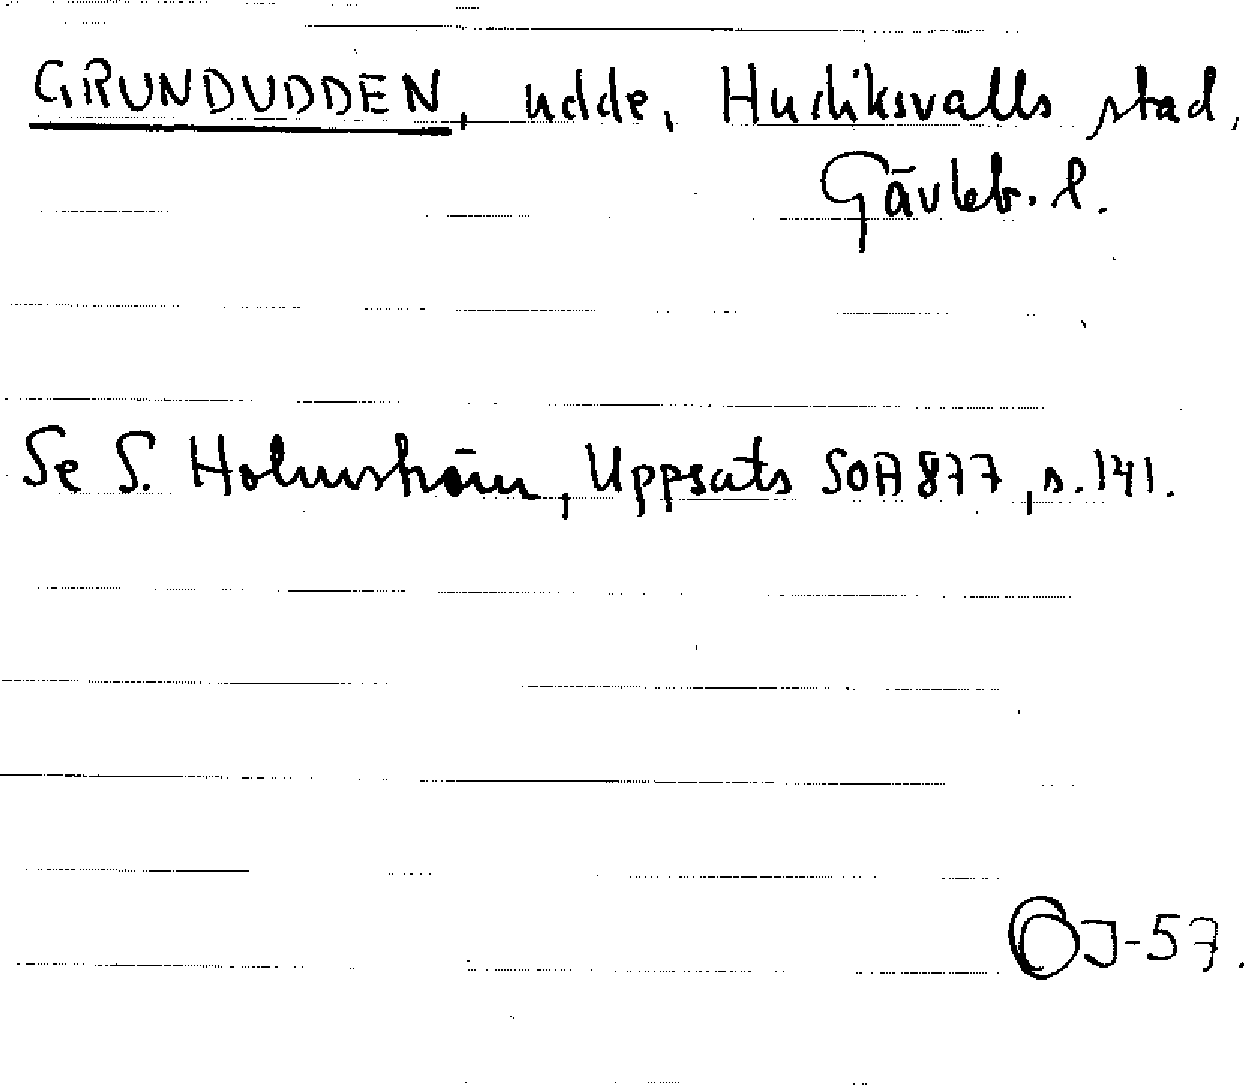 GRUNDUDDEN, udde, Hudiksvalls stad,
Gävleb. l.
Se S. Holmström, Uppsats SOA 877, s. 141.
OJ-57.